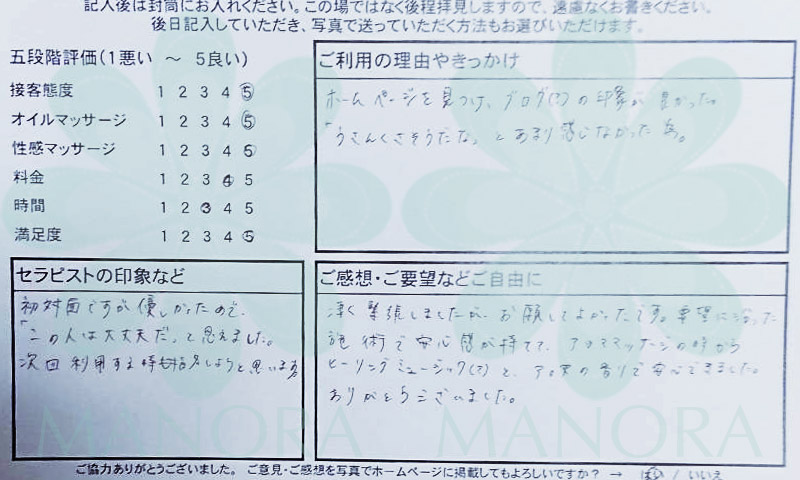 記入後は封筒にお入れください。この場ではなく後程拝見しますので、遠慮なくお書きください。
後日記入していただき、写真で送っていただく方法もお選びいただけます。
五段階評価(1悪い ～ 5良い)
接客態度 1 2 3 4 5
オイルマッサージ 1 2 3 4 5
性感マッサージ 1 2 3 4 5
料金 1 2 3 4 5
時間 1 2 3 4 5
満足度 1 2 3 4 5
ご利用の理由やきっかけ
ホームページを見つけ、ブログ(?)の印象が良かった。
「うさんくさそうだな」とあまり感じなかった為。
セラピストの印象など
初対面ですが優しかったので、
「この人は大丈夫だ」って思えました。
次回利用する時も指名しようと思います
ご感想・ご要望などご自由に
凄く緊張しましたが、お願してよかったです。要望に沿った
施術で安心感が持てて、アロママッサージの時から
ヒーリングミュージック(?)と、アロマの香りで安心できました。
ありがとうございました。
MANORA MANORA
ご協力ありがとうございました。 ご意見・ご感想を写真でホームページに掲載してもよろしいですか? → はい / いいえ